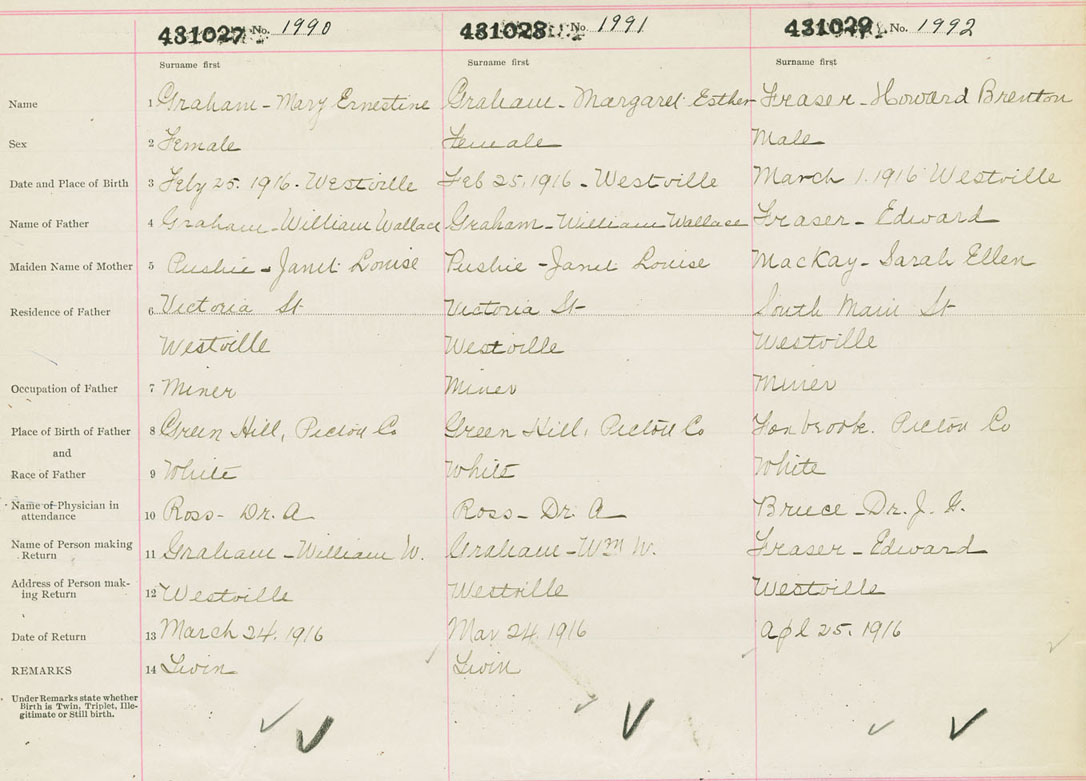 431027 No. 1990 431028 No. 1991 431029 No. 1992
Surname first Surname first Surname first
Name 1 Graham - Mary Ernestine Graham - Margaret Esther Fraser - Howard Brenton
Sex 2 Female Female Male
Date and Place of Birth 3 Feby 25. 1916. Westville Feb 25, 1916 - Westville March 1. 1916 Westville
Name of Father 4 Graham - William Wallace Graham - William Wallace Fraser - Edward
Maiden Name of Mother 5 Pushie - Janet Louise Pushie - Janet Louise MacKay - Sarah Ellen
Residence of Father 6 Victoria St Victoria St South Main St
Westville Westville Westville
Occupation of Father 7 Miner Miner Miner
Place of Birth of Father 8 Green Hill, Pictou Co Green Hill, Pictou Co Foxbrook. Pictou Co
and
Race of Father 9 White White White
Name of Physician in
attendance 10 Ross - Dr. A Ross - Dr. A Bruce - Dr. J. G.
Name of Person making
Return 11 Graham - William W. Graham - Wm W. Fraser - Edward
Address of Person mak-
ing Return 12 Westville Westville Westville
Date of Return 13 March 24. 1916 Mar 24. 1916 Apl 25. 1916
REMARKS 14 Twin Twin
Under Remarks state whether
Birth is Twin, Triplet, Ille-
gitimate or Still birth.